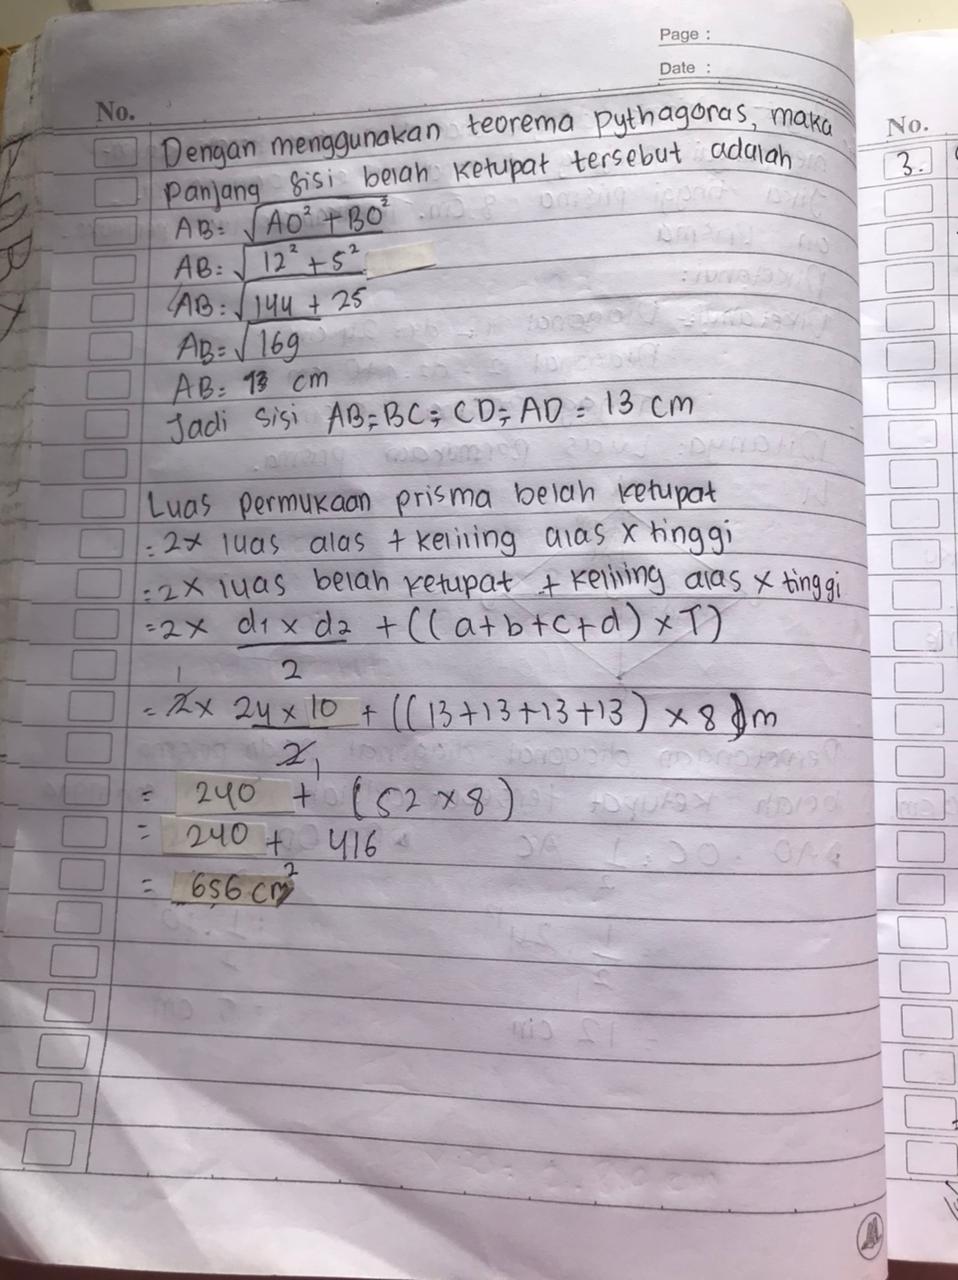 Page :
Date :
No.
Dengan menggunakan teorema pythagoras, maka
Panjang sisi belah ketupat tersebut adalah
AB = √AO² + BO²
AB = √12² + 5²
AB = √144 + 25
AB = √169
AB = 13 cm
Jadi sisi AB = BC = CD = AD = 13 cm
Luas permukaan prisma belah ketupat
= 2 x luas alas + keliling alas x tinggi
= 2 x luas belah ketupat + keliling alas x tinggi
= 2 x d1 x d2 + ((a+b+c+d) x T)
2
1
= 2 x 24 x 10 + ((13+13+13+13) x 8 cm
2 1
= 240 + (52 x 8)
= 240 + 416
= 656 cm²
No.
3.